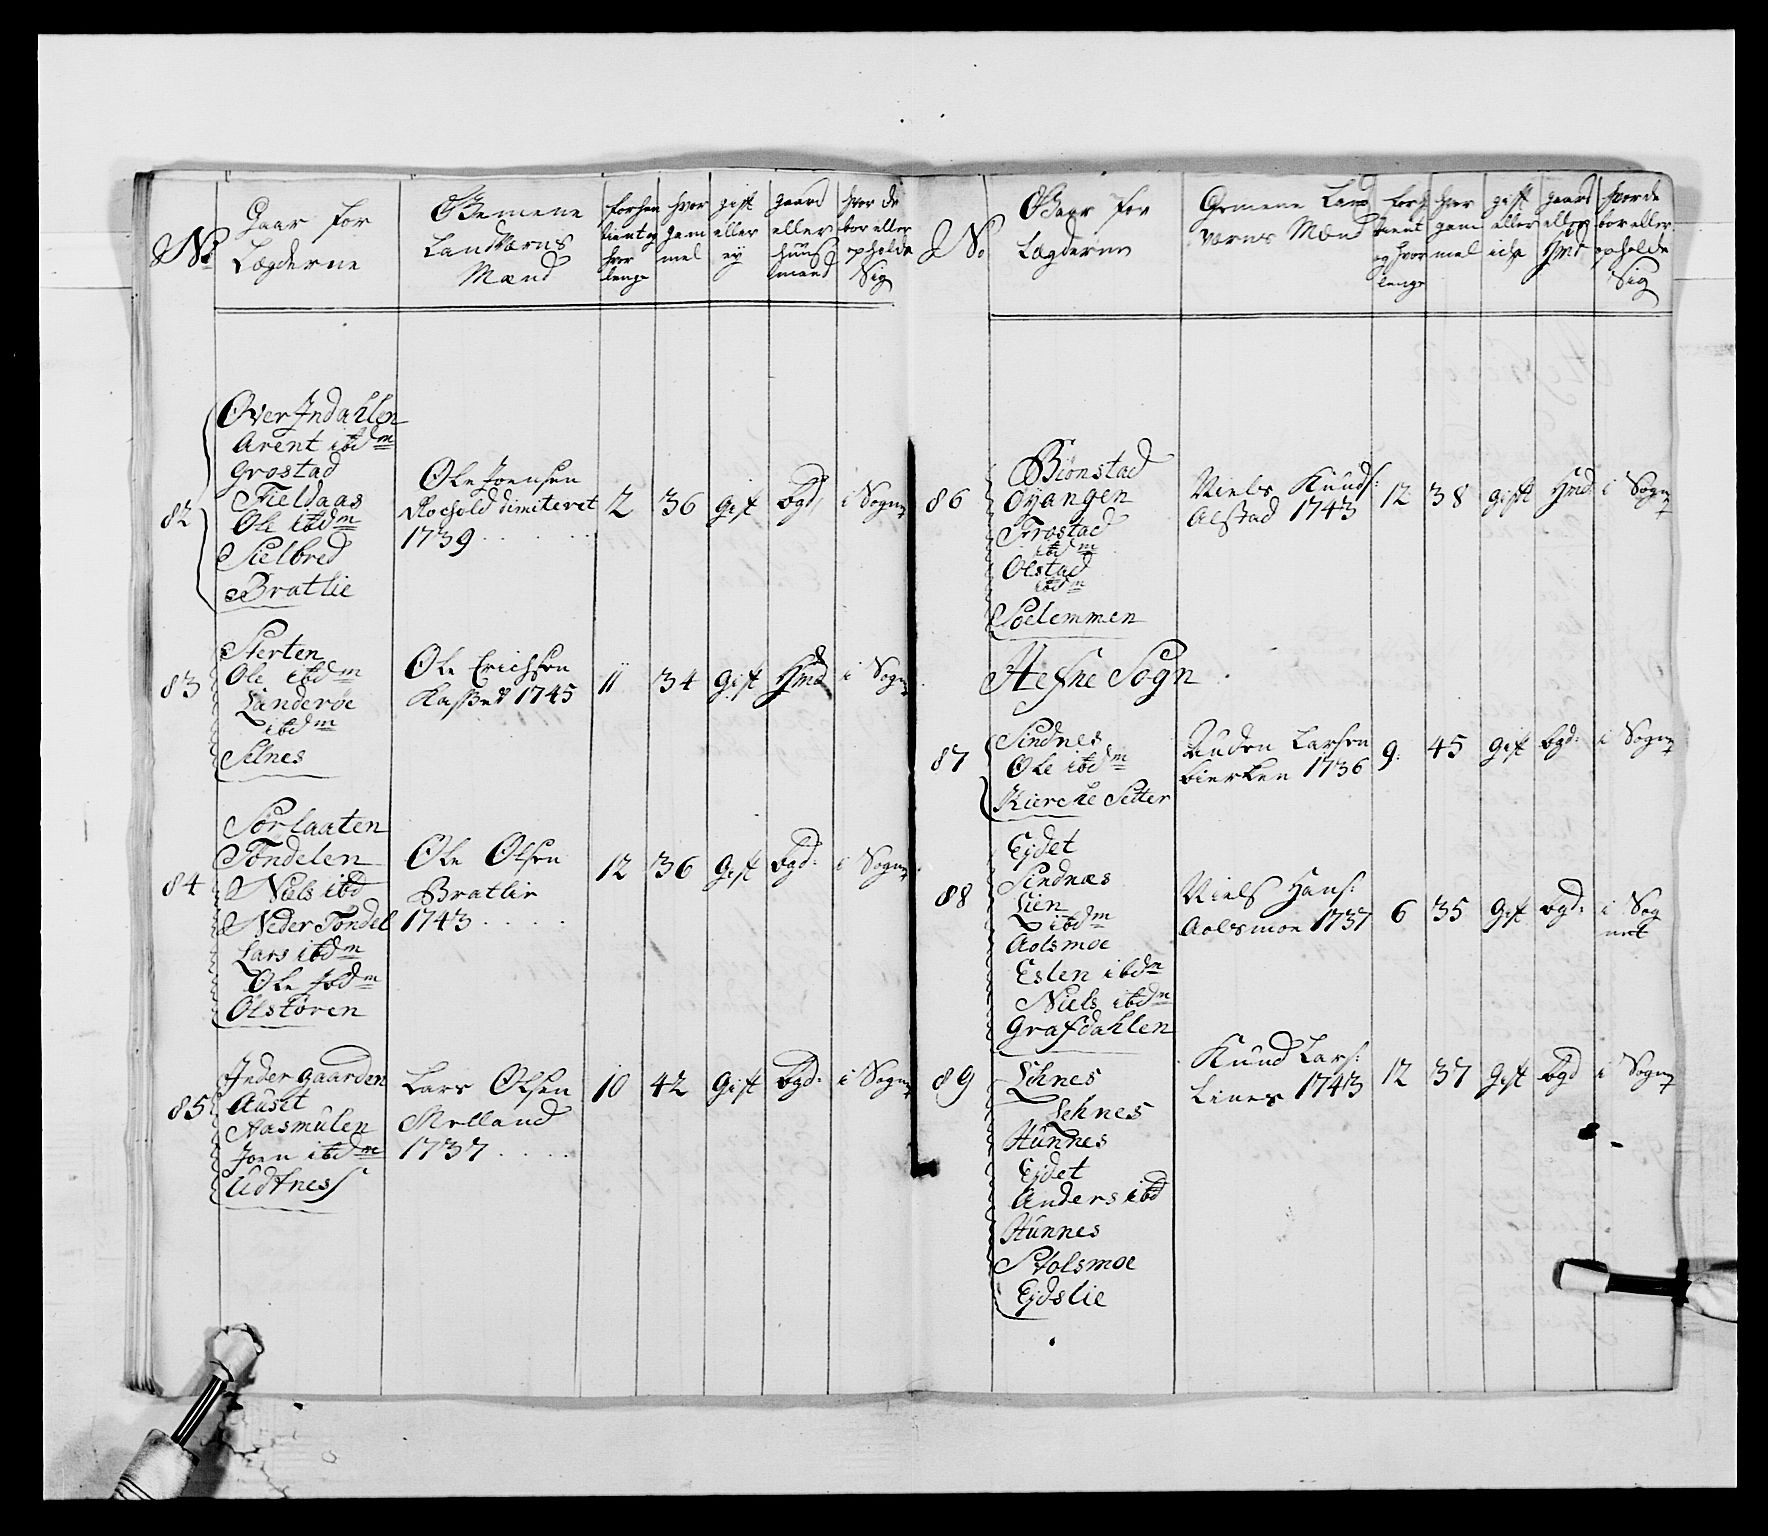 No
Gaar for
Lægderne
Gemene
Landværns
Mænd
forhen
tient og
hvor
lenge
hvor
gam
mel
gift
eller
ey
gaard
eller
huus
mand
hvor de
bor eller
opholde
Sig
82
Over Indahlen
Arent ibdm
Grostad
Fieldaas
Ole ibdm
Sielbred
Bratlie
Ole Joensen
dimiteret
1739
2
36
gift
bgd
i Sogn
83
Sterten
Ole ibdm
Sanderøe
ibdm
Selnes
Ole Erichsen
1745
11
34
gift
Hmd
i Sogn
84
Sørlaaten
Tøndelen
Niels ibd
Neder Tøndel
Lars ibdm
Ole ibdm
Olstøren
Ole Olsen
Bratlie
1743
12
36
Gift
bgd:
i Sogn
85
Inder gaarden
Auset
Aasmulen
Joen ibdm
Udtness
Lars Olsen
Melland
1737
10
42
Gift
bgd:
i Sogn
No
Gaar for
Lægderne
Gemene Land
værns Mænd
forh
tient
og hvor
lenge
hvor
gam
mel
gift
eller
icke
gaard
eller
Hmd
hvor de
bor eller
opholde
Sig
86
Biønstad
Øyangen
Frostad
ibdm
Olstad
ibdm
Soelemmen
Niels Knuds:
Alstad 1743
12
38
gift
Hmd
i Sogn
Hefne Sogn
87
Sindnes
Ole ibdm
Kierche Setter
Auden Larsen
bierken 1736
9
45
gift
bgd:
i Sogn
88
Eydet
Sindnæs
Lien
ibdm
Aolsmoe
Eslen ibdm
Niels ibdm
Grafdahlen
Niels Hans:
Aolsmoe 1737
6
35
Gift
bgd:
i Sog
net
89
Lehnes
Lehnes
Hunnes
Eydet
Anders ibd
Hunnes
Stolsmoe
Eydslie
Knud Lars:
Lines 1743
12
37
gift
bgd
i Sogn